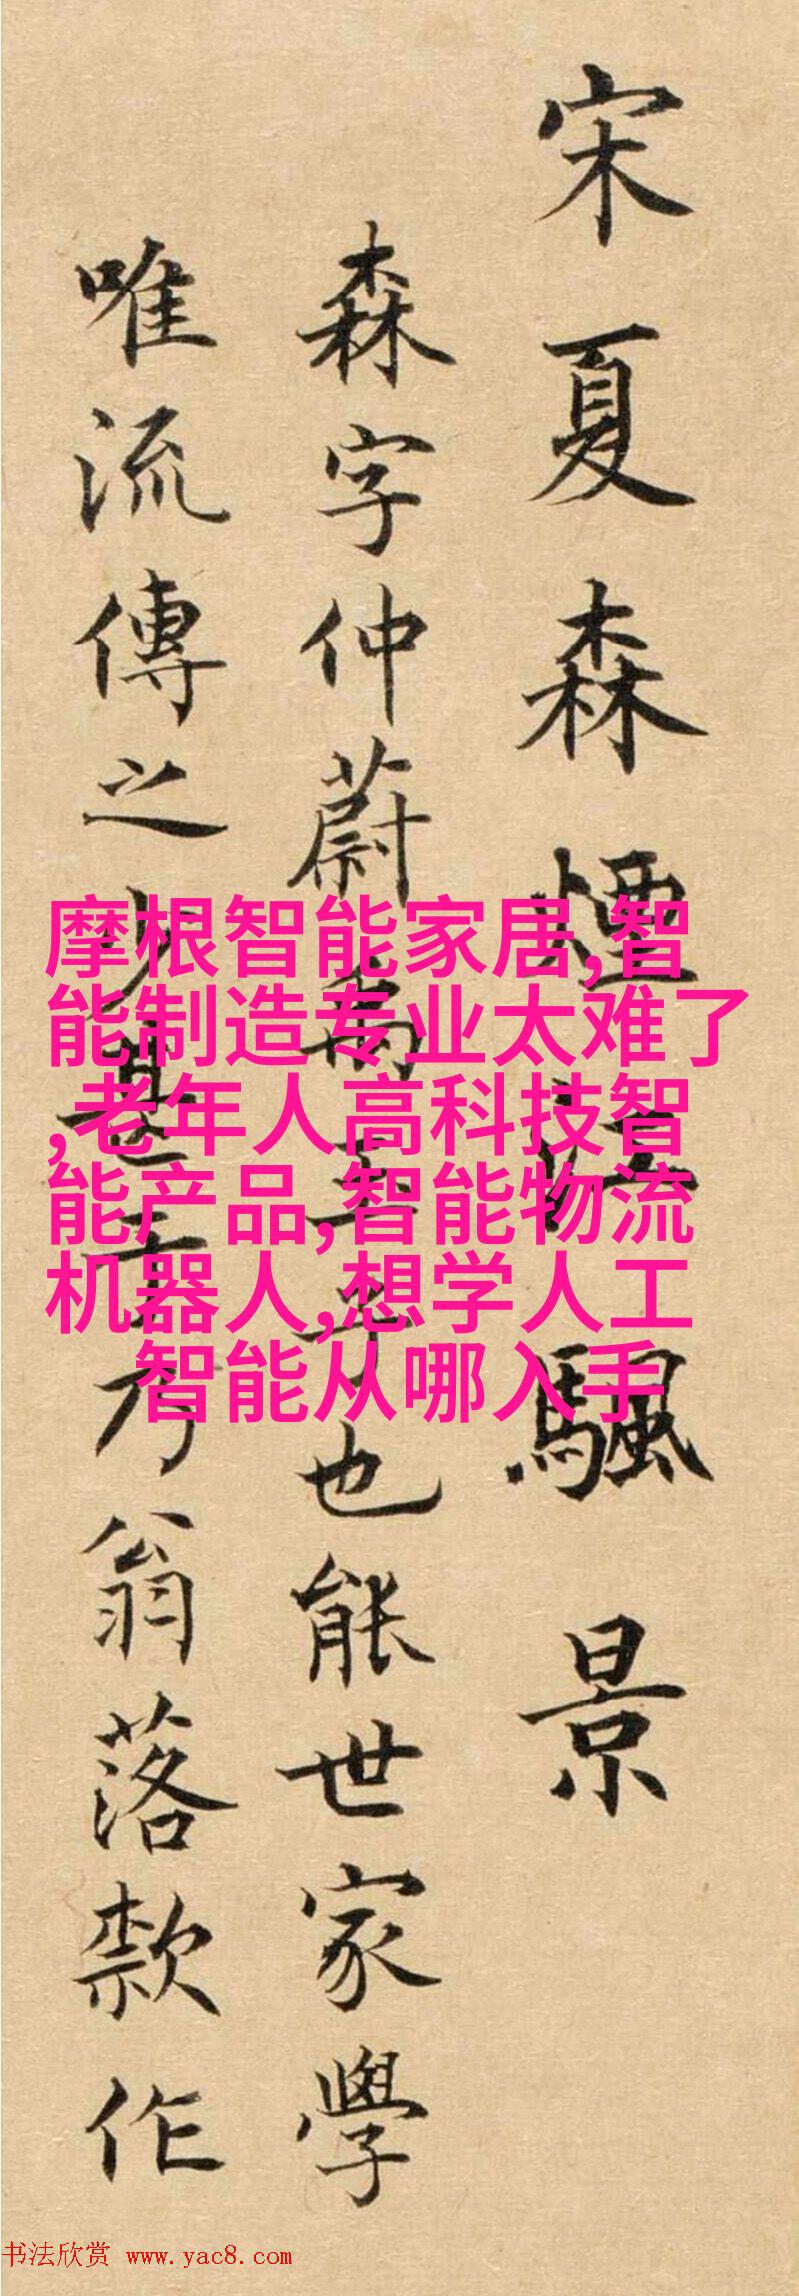 宋夏森煙江颿景
森字仲蔚為圭子也能世家學
唯流傳之少甚于乃翁落款作
摩根智能家居,智
能制造专业太难了
,老年人高科技智
能产品,智能物流
机器人,想学人工
智能从哪入手
书法欣赏 www.yac8.com